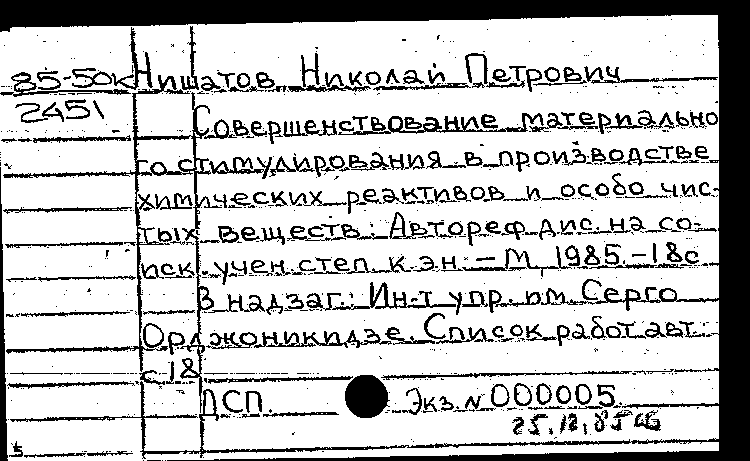 85-50к Нишатов Николай Петрович
2451
Совершенствование материально
го стимулирования в производстве
химических реактивов и особо чис-
тых веществ: Автореф дис. на со-
иск. учен. степ. к. эн. - М, 1985. - 18с
В надзаг.: Ин-т упр. им. Серго
Орджоникидзе. Список работ авт.:
с 18
ДСП. Экз. N 000005.
25.12.85